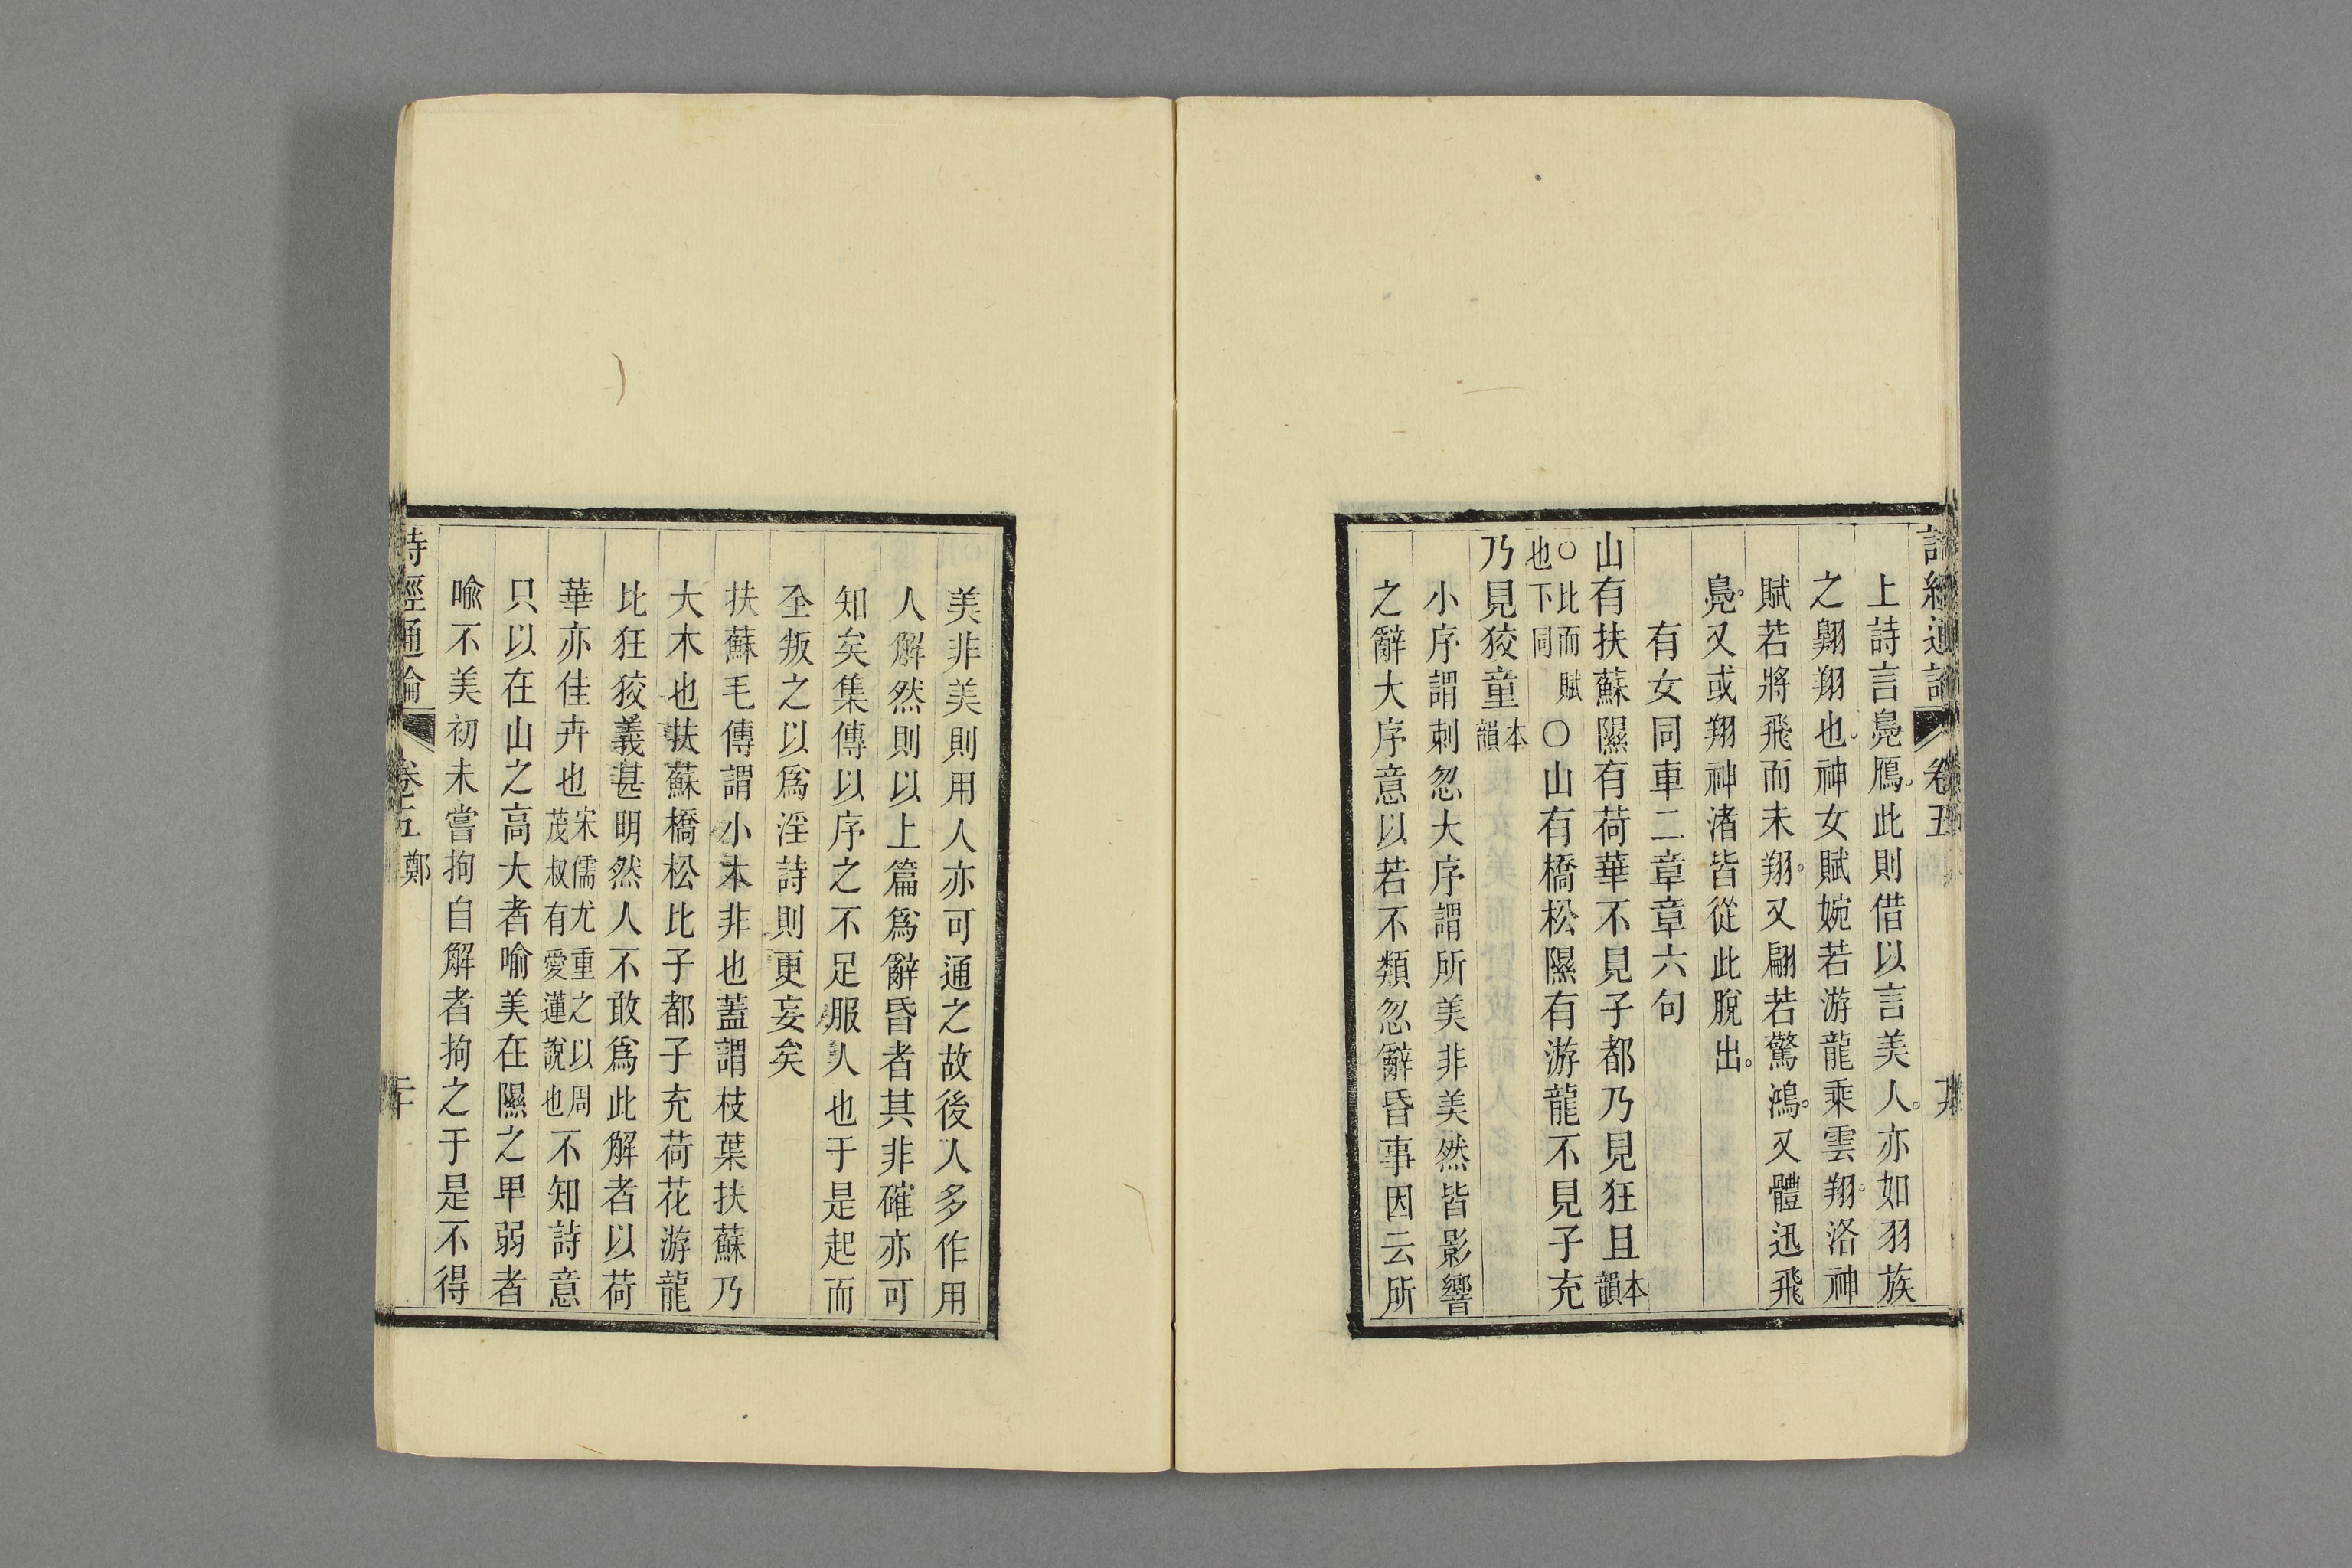 詩經通論 卷五
上詩言鳧鴈此則借以言美人。亦如羽族
之翱翔也神女賦婉若游龍乘雲翔洛神
賦若將飛而未翔。又翩若驚鴻。又體迅飛
鳧。又或翔神渚皆從此脫出。
有女同車二章章六句
山有扶蘇隰有荷華不見子都乃見狂且本韻
○比而賦也下同○山有橋松隰有游龍不見子充
乃見狡童本韻
小序謂刺忽大序謂所美非美然皆影響
之辭大序意以若不類忽辭昏事因云所
美非美則用人亦可通之故後人多作用
人解然則以上篇爲辭昏者其非確亦可
知矣集傳以序之不足服人也于是起而
全叛之以爲淫詩則更妄矣
扶蘇毛傳謂小木非也蓋謂枝葉扶蘇乃
大木也扶蘇橋松比子都子充荷花游龍
比狂狡義甚明然人不敢爲此解者以荷
華亦佳卉也宋儒尤重之以周茂叔有愛蓮說也不知詩意
只以在山之高大者喻美在隰之甲弱者
喩不美初未嘗拘自解者拘之于是不得
詩經通論 卷五 鄭 二十